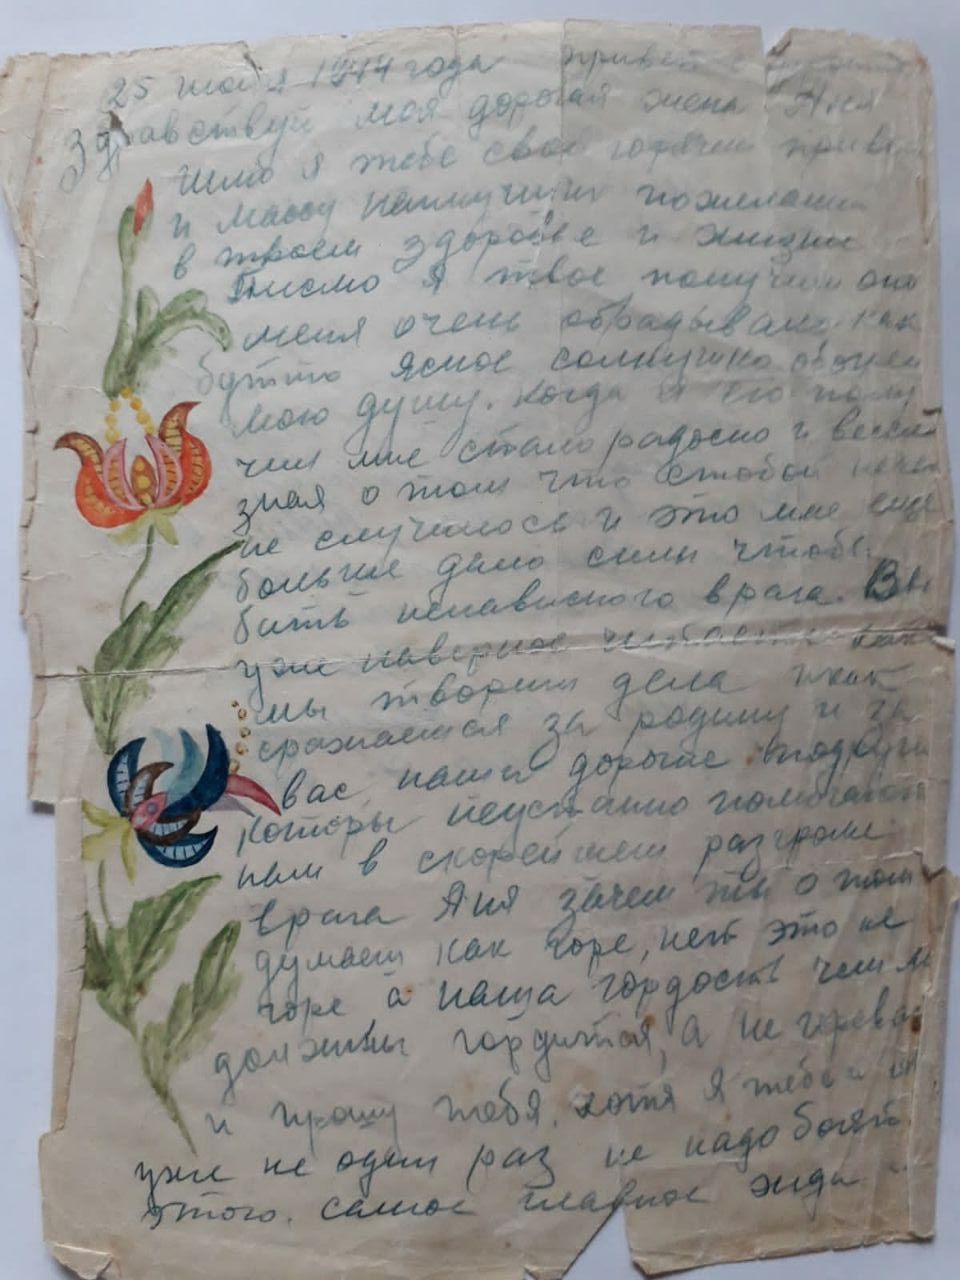 25 июля 1944 года привет с
Здравствуй моя дорогая жена Аня
Шлю я тебе свой горячий привет
и массу наилучших пожеланий
в твоем здоровье и жизни
Письмо я твое получил оно
меня очень обрадывало как
бутто ясное солнушко
мою душу. Когда я его полу
чил мне стало радосно и весел
зная о том что стобой ничег
не случилось и это мне еще
больше дало силы чтобы
бить ненависного врага. Вы
уже наверное читаете как
мы творим дела и как
сражаемся за родину и за
вас, наши дорогие подруги
которы неустанно помогают
нам в скорейшем разгроме
врага Аня зачем ты о том
думаеш как горе, неть это не
горе а наша гордость чем м
должны гордится, а не горева
и прошу тебя, хотя я тебе
уже не один раз не надо боять
этого. самое главное жди